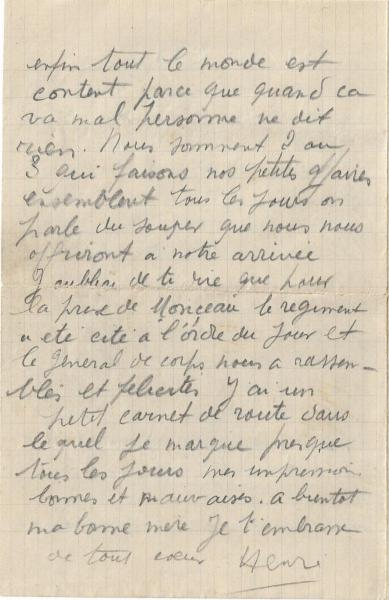 enfin tout le monde est
content parce que quand ca
va mal personne ne dit
rien. Nous somment 2 ou
3 qui faisons nos petites affaires
ensemblent tous les jours on
parle du souper que nous nous
offriront a notre arrivée
J'oubliai de te dire que pour
la prise de Monceau le regiment
a eté cité a l'ordre du Jour et
le general de corps nous a rassem-
blés et felicités J'ai un
petit carnet de route dans
le quel je marque presque
tous les jours mes impressions
bonnes et mauvaises. a bientot
ma bonne mere Je t'embrasse
de tout coeur Henri